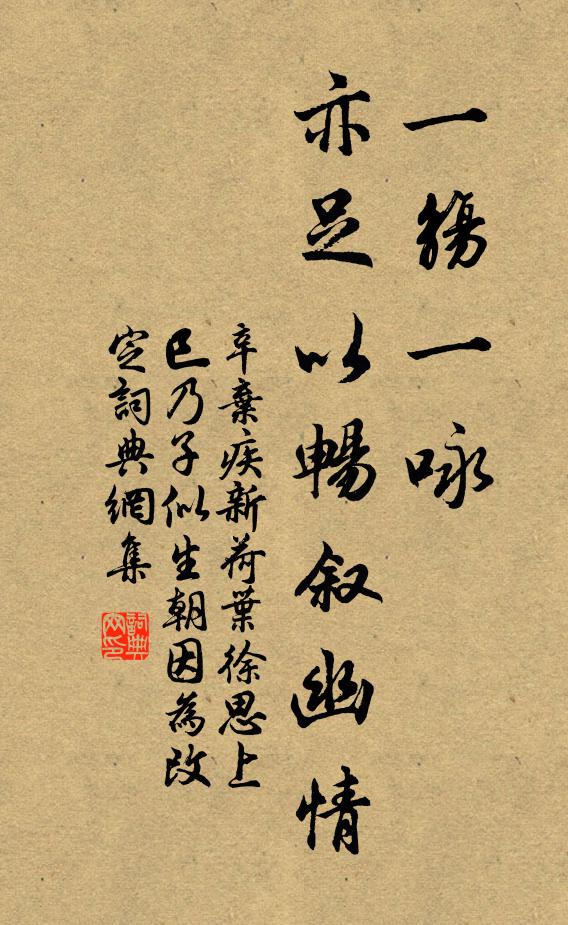 一觴一咏
亦足以暢叙幽情
辛棄疾新荷葉徐思上
巳乃子似生朝因為改
定詞典網集
詞典
网印